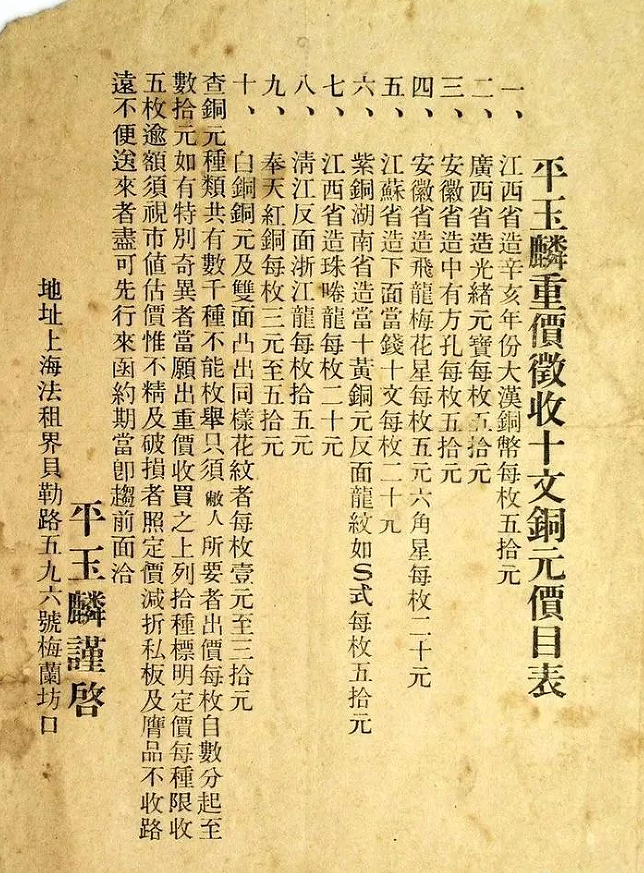 平玉麟重價徵收十文銅元價目表
一、江西省造辛亥年份大漢銅幣每枚五拾元
二、廣西省造光緒元寶每枚五拾元
三、安徽省造中有方孔每枚五拾元
四、安徽省造飛龍梅花星每枚五元六角星每枚二十元
五、江蘇省造下面當錢十文每枚二十元
六、紫銅湖南省造當十黃銅元反面龍紋如S式每枚五拾元
七、江西省造珠啳龍每枚二十元
八、淸江反面浙江龍每枚拾五元
九、奉天紅銅每枚三元至五拾元
十、白銅銅元及雙面凸出同樣花紋者每枚壹元至三拾元
查銅元種類共有數千種不能枚舉只須敝人所要者出價每枚自數分起至
數拾元如有特別奇異者當願出重價收買之上列拾種標明定價每種限收
五枚逾額須視市値估價惟不精及破損者照定價減折私板及贋品不收路
遠不便送來者盡可先行來函約期當卽趨前面洽
平玉麟謹啓
地址上海法租界貝勒路五九六號梅蘭坊口